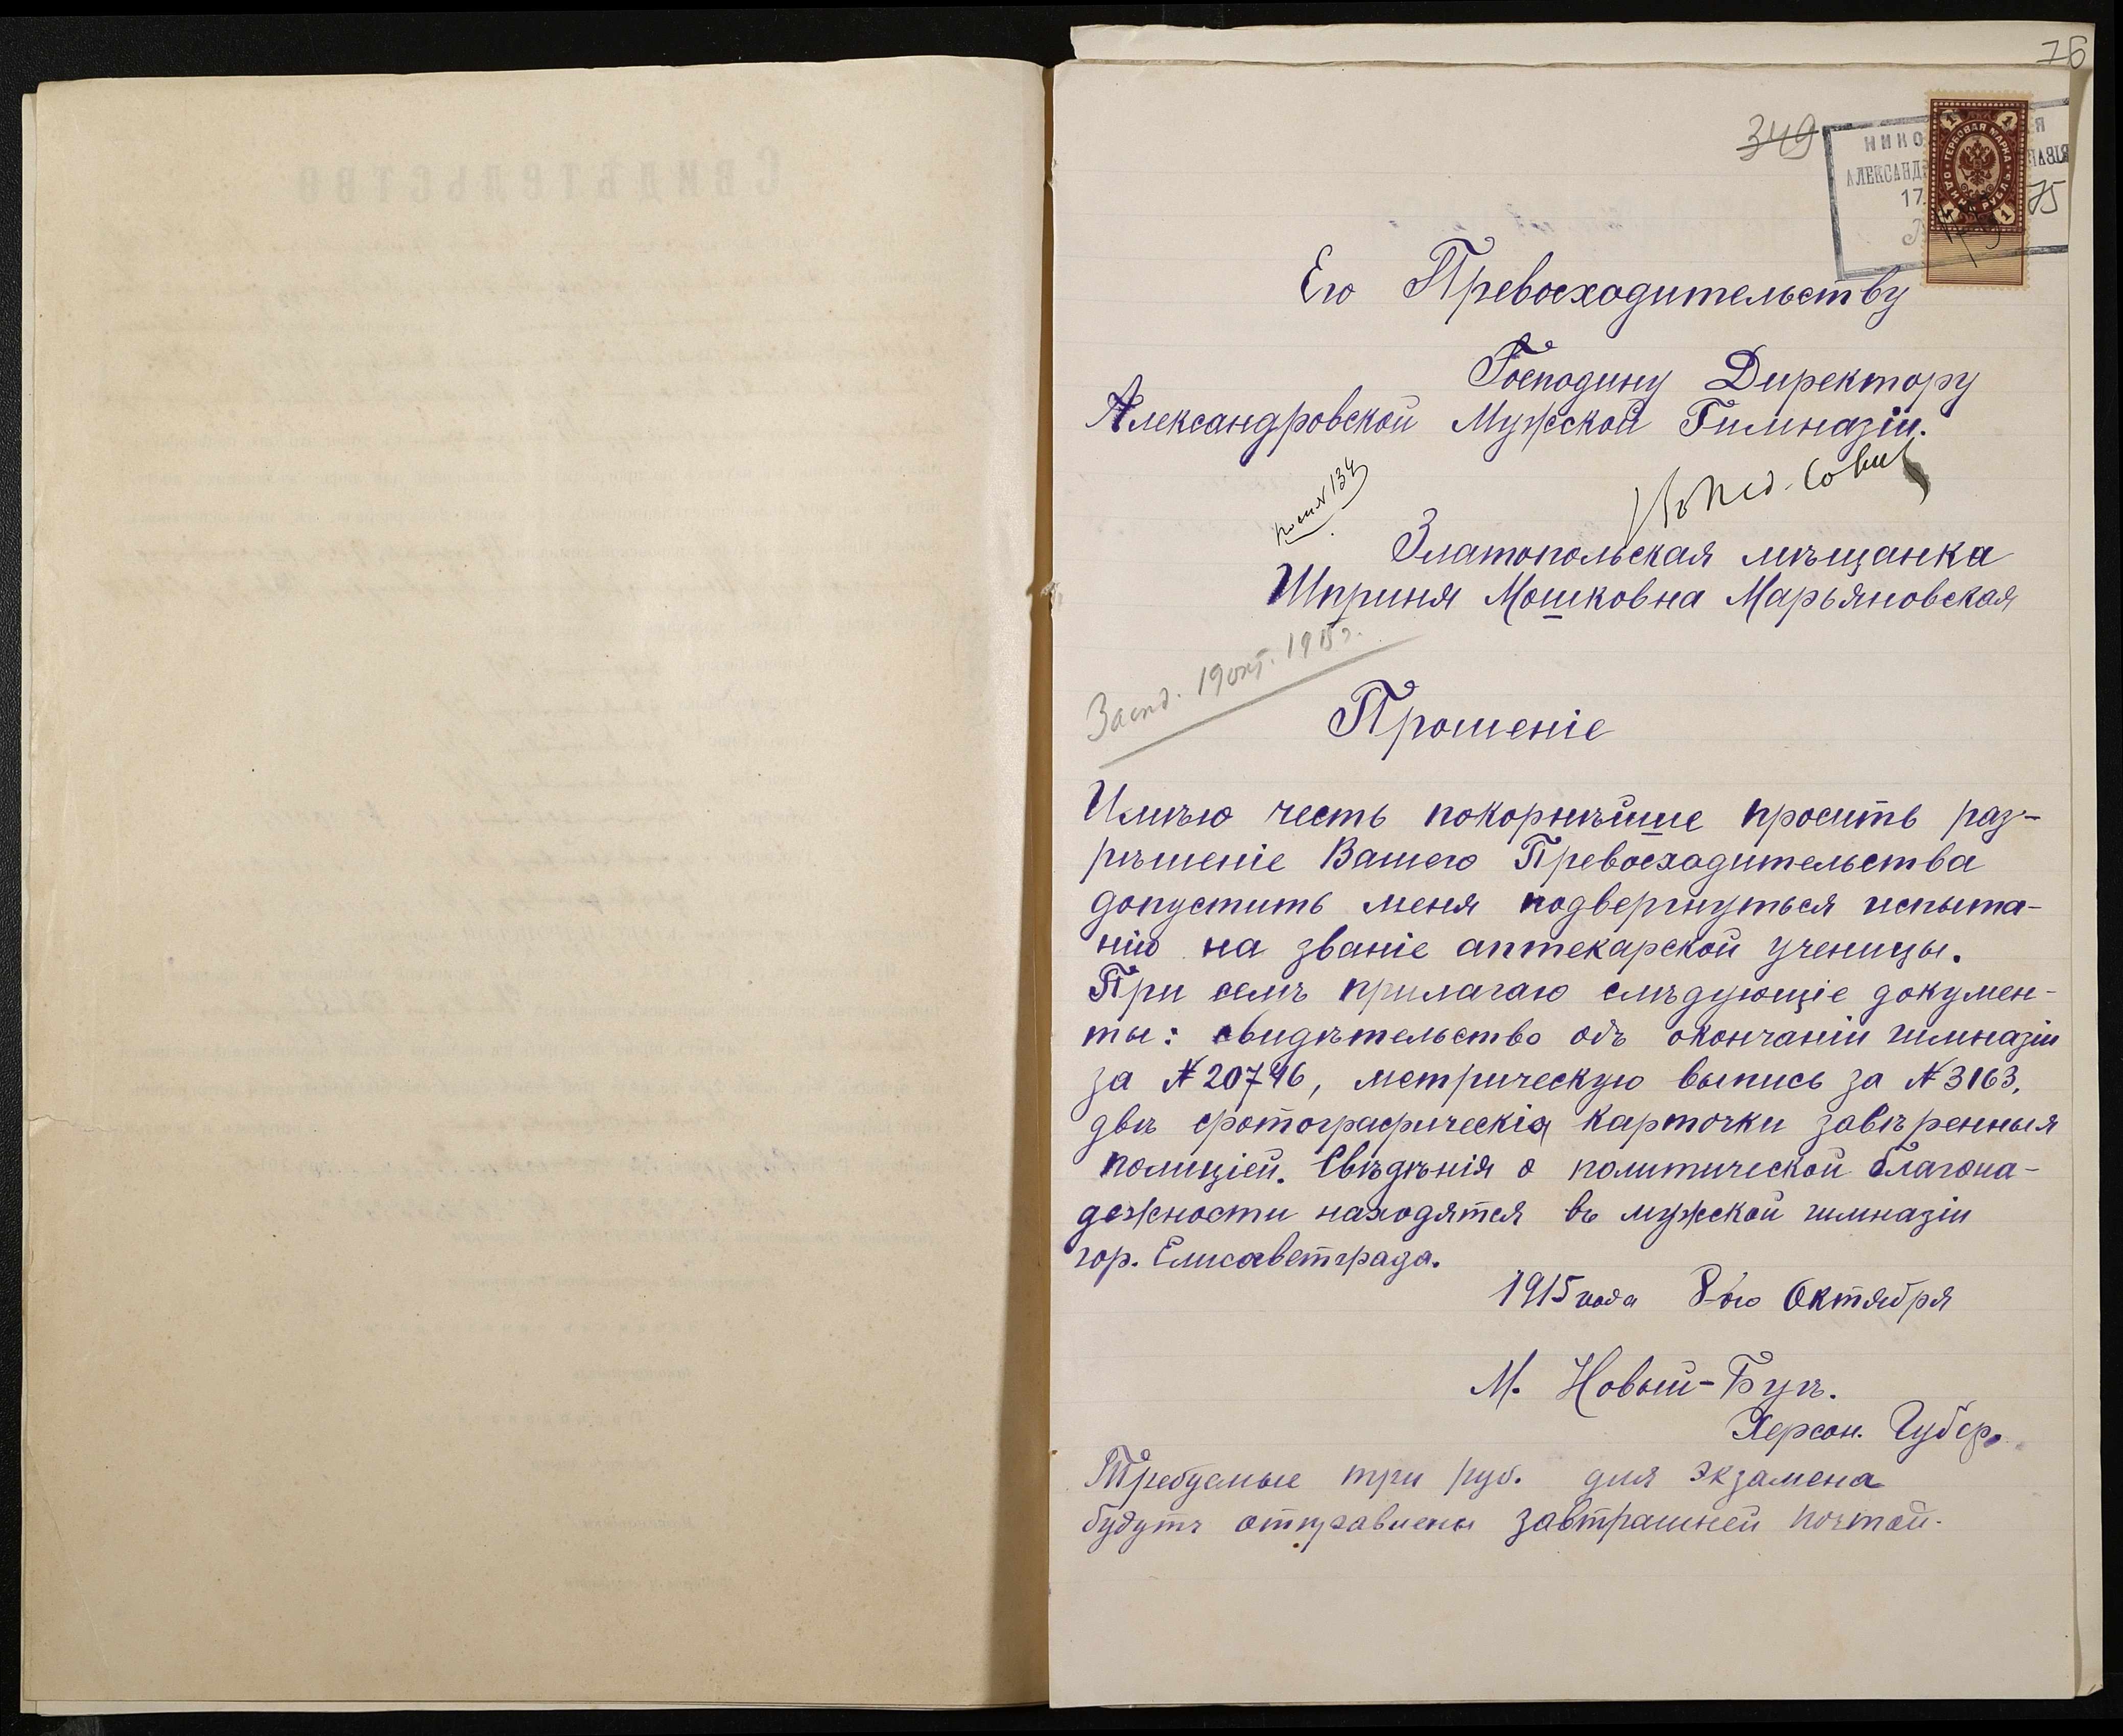 76
349
НИКО Я
АЛЕКСАНД НАЗІЯ
17 75
ГЕРБОВАЯ МАРКА
ОДИНЪ РУБЛЬ
1 1
1 1
Его Превосходительству
Господину Директору
Александровской Мужской Гимназіи.
134
Въ Пед. Совѣт
Златопольская мѣщанка
Шприня Мошковна Марьяновская
Засѣд. 19 окт. 1915 г.
Прошеніе
Имѣю честь покорнѣйше просить раз-
рѣшеніе Вашего Превосходительства
допустить меня подвергнуться испыта-
нію на званіе аптекарской ученицы.
При семъ прилагаю слѣдующіе докумен-
ты: свидѣтельство объ окончаніи гимназіи
за № 20746, метрическую выпись за № 3163,
двѣ фотографическія карточки завѣренныя
полиціей. Свѣдѣнія о политической благона-
дежности находятся въ мужской гимназіи
гор. Елисаветграда.
1915 года 8-ого Октября
М. Новый-Бугъ.
Херсон. Губер.
Требуемые три руб. для экзамена
будутъ отправлены завтрашней почтой.
Свидѣтельство